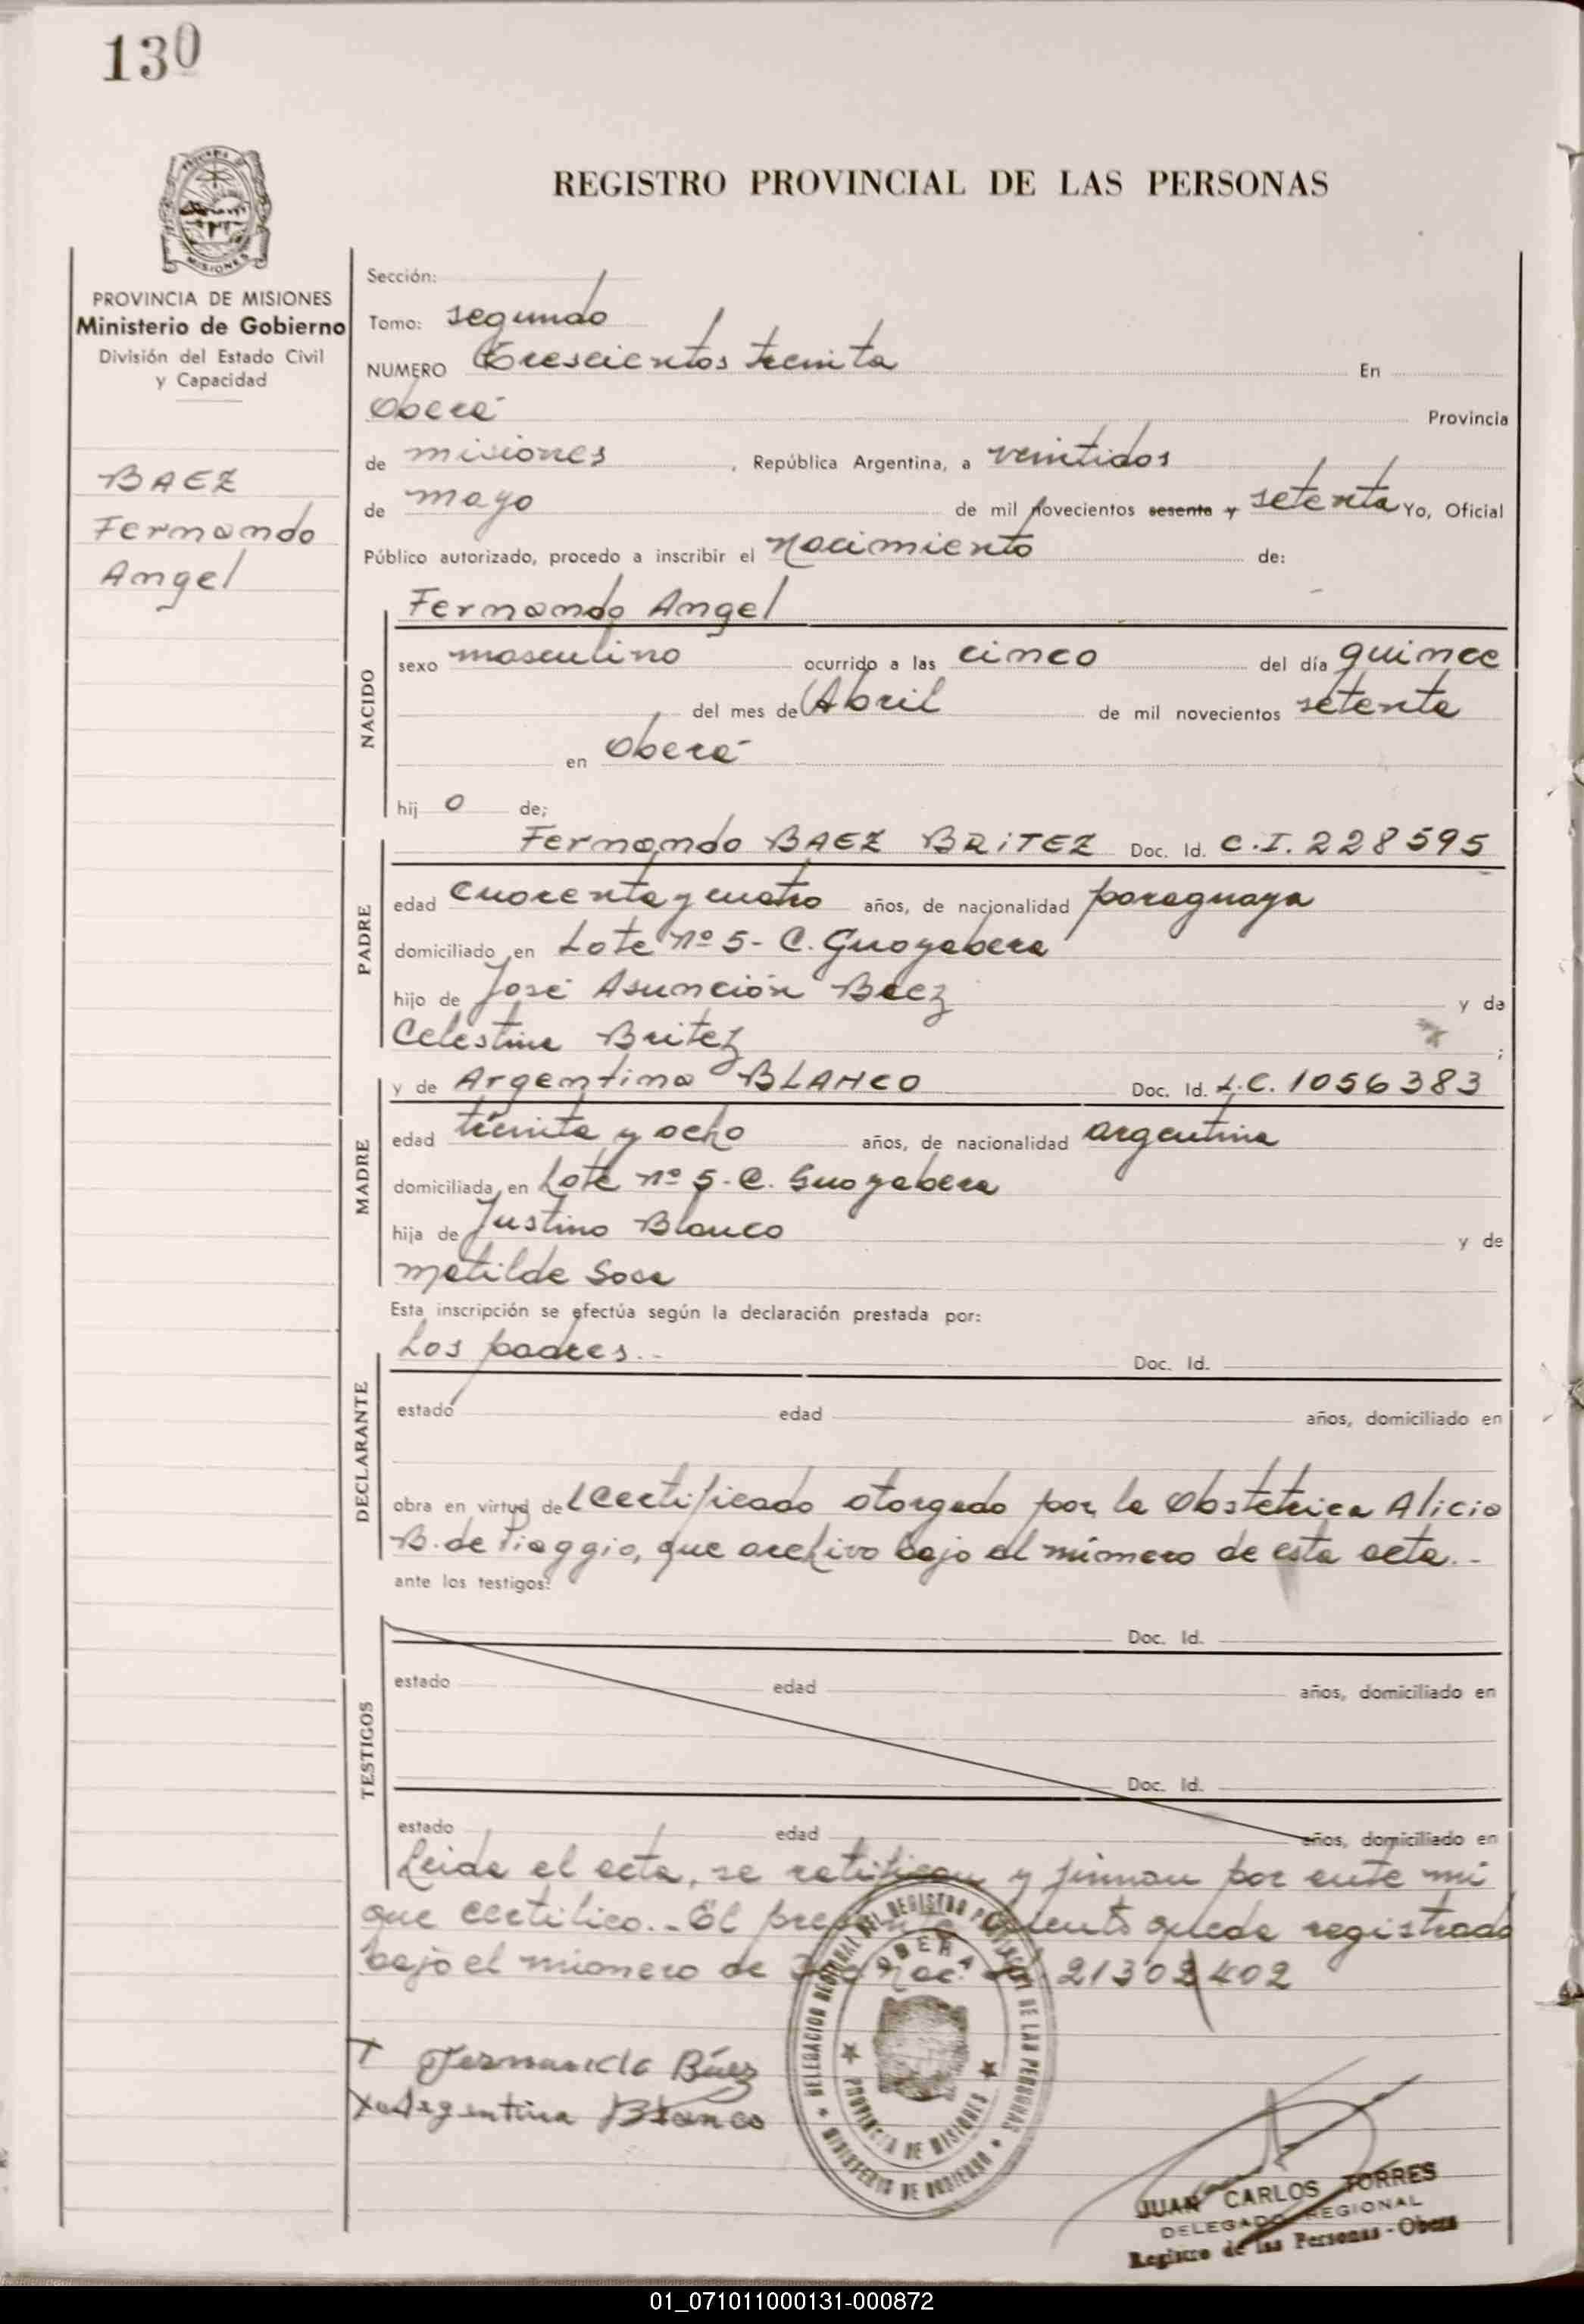 130
MISIONES
REGISTRO PROVINCIAL DE LAS PERSONAS
PROVINCIA DE MISIONES
Ministerio de Gobierno
División del Estado Civil
y Capacidad
BAEZ
Fernando
Angel
Sección:
Tomo: segundo
NUMERO Trescientos treinta En
Oberá Provincia
de misiones, República Argentina, a veintidos
de mayo de mil novecientos sesenta y setenta Yo, Oficial
Público autorizado, procedo a inscribir el nacimiento de:
Fernando Angel
NACIDO
sexo masculino ocurrido a las cinco del día quince
del mes de Abril de mil novecientos setenta
en Oberá
hij o de;
PADRE
Fernando BAEZ BRITEZ Doc. Id. C.I. 228595
edad cuarenta y cuatro años, de nacionalidad paraguaya
domiciliado en Lote nº 5 - C. Guayabera
hijo de José Asunción Baez y de
Celestina Britez ;
MADRE
y de Argentina BLANCO Doc. Id. L.C. 1056383
edad treinta y ocho años, de nacionalidad argentina
domiciliada en Lote nº 5 - C. Guayabera
hija de Justino Blanco y de
Matilde Sosa
Esta inscripción se efectúa según la declaración prestada por:
DECLARANTE
Los padres.- Doc. Id.
estado edad años, domiciliado en
obra en virtud de Certificado otorgado por la Obstetrica Alicia
B. de Piaggio, que archivo bajo el número de esta acta.-
ante los testigos:
TESTIGOS
Doc. Id.
estado edad años, domiciliado en
Doc. Id.
estado edad años, domiciliado en
Leida el acta, se ratifican y firman por ante mi
que certifico.- El presente queda registrado
bajo el número de 21302402
Fernando Báez
Argentina Blanco
DELEGACION REGIONAL DEL REGISTRO PROVINCIAL DE LAS PERSONAS
OBERA
PROVINCIA DE MISIONES
MINISTERIO DE GOBIERNO
JUAN CARLOS TORRES
DELEGADO REGIONAL
Registro de las Personas - Obera
01_071011000131-000872